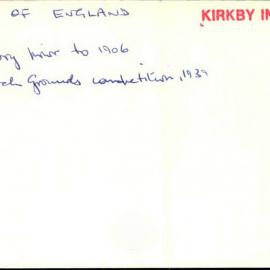 OF ENGLAND
KIRKBY IN
ory prior to 1906
ch Grounds competition, 1939